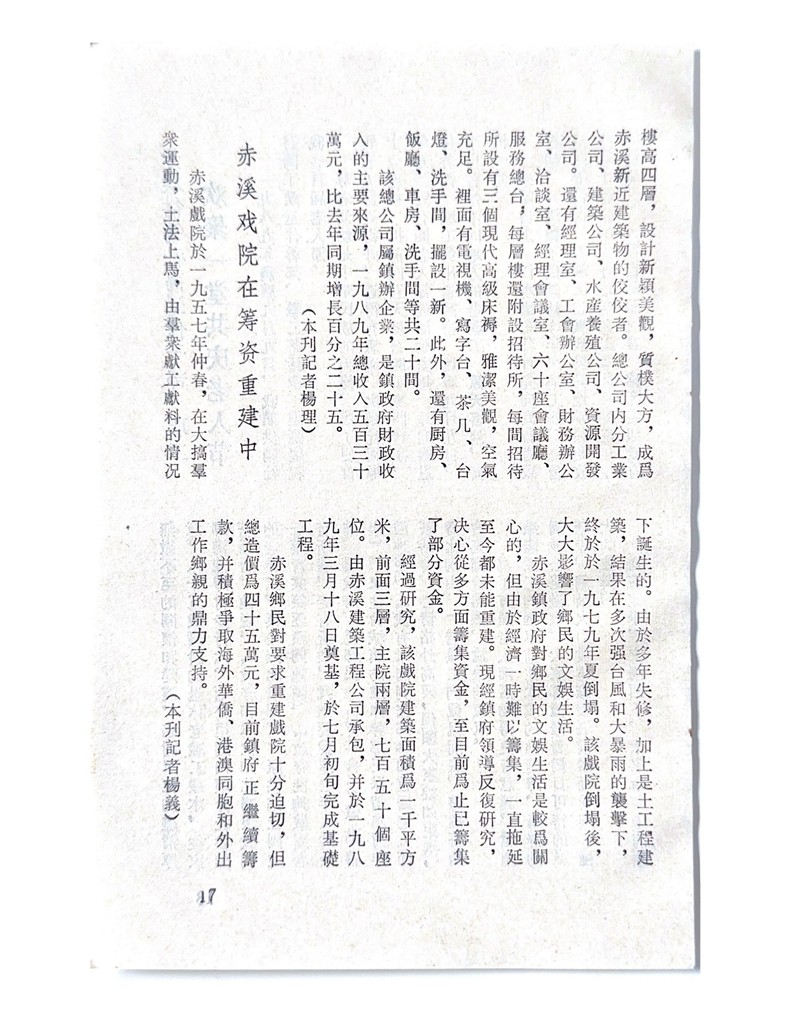 樓高四層，設計新穎美觀，質樸大方，成爲
赤溪新近建築物的佼佼者。總公司内分工業
公司、建築公司、水産養殖公司、資源開發
公司。還有經理室、工會辦公室、財務辦公
室、洽談室、經理會議室、六十座會議廳、
服務總台，每層樓還附設招待所，每間招待
所設有三個現代高級床褥，雅潔美觀，空氣
充足。裡面有電視機、寫字台、茶几、台
燈、洗手間，擺設一新。此外，還有厨房、
飯廳、車房、洗手間等共二十間。
該總公司屬鎮辦企業，是鎮政府財政收
入的主要來源，一九八九年總收入五百三十
萬元，比去年同期增長百分之二十五。
（本刊記者楊理）
赤溪戏院在筹资重建中
赤溪戲院於一九五七年仲春，在大搞羣
衆運動，土法上馬，由羣衆獻工獻料的情况
下誕生的。由於多年失修，加上是土工程建
築，結果在多次强台風和大暴雨的襲擊下，
終於於一九七九年夏倒塌。該戲院倒塌後，
大大影響了鄉民的文娛生活。
赤溪鎮政府對鄉民的文娛生活是較爲關
心的，但由於經濟一時難以籌集，一直拖延
至今都未能重建。現經鎮府領導反復研究，
决心從多方面籌集資金，至目前爲止已籌集
了部分資金。
經過研究，該戲院建築面積爲一千平方
米，前面三層，主院兩層，七百五十個座
位。由赤溪建築工程公司承包，并於一九八
九年三月十八日奠基，於七月初旬完成基礎
工程。
赤溪鄉民對要求重建戲院十分迫切，但
總造價爲四十五萬元，目前鎮府正繼續籌
款，并積極爭取海外華僑、港澳同胞和外出
工作鄉親的鼎力支持。
（本刊記者楊義）
17